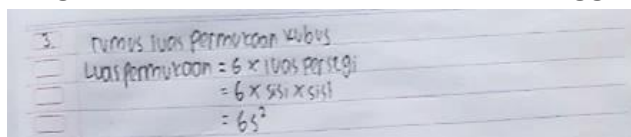 3. rumus luas permukaan kubus
Luas permukaan = 6 x luas persegi
= 6 x sisi x sisi
= 6s²